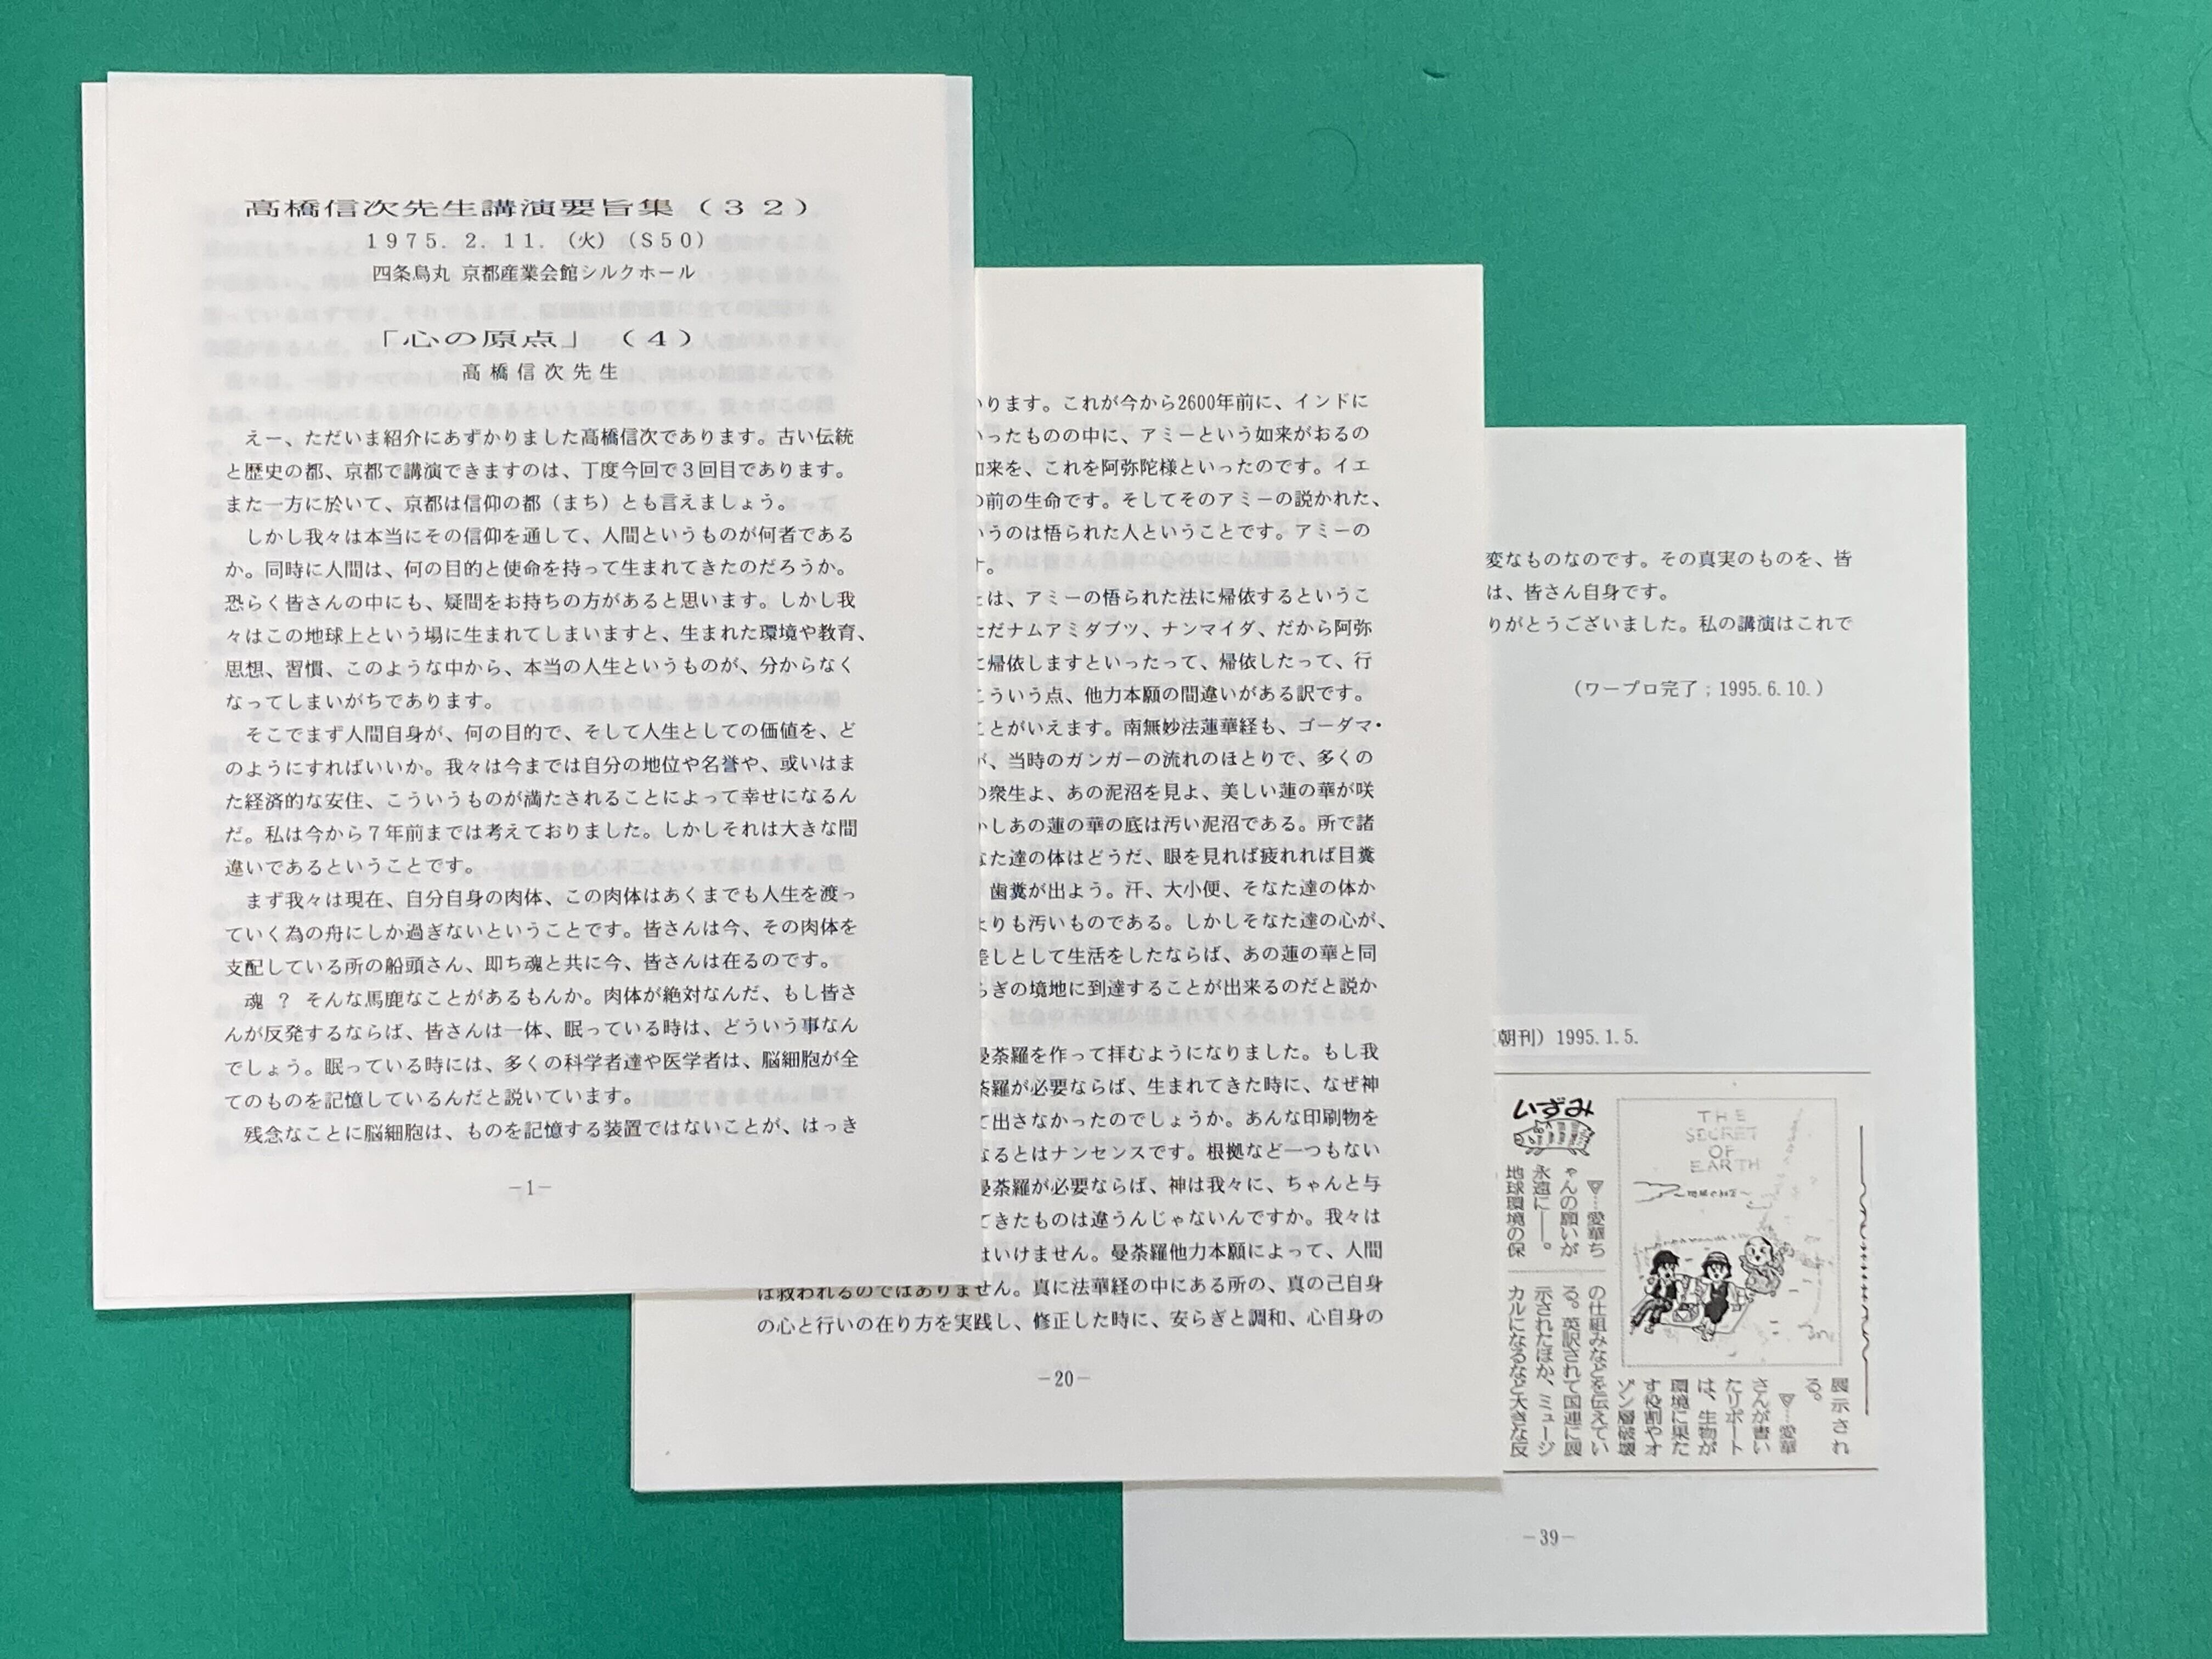 高橋信次先生講演要旨集（３２）
１９７５．２．１１．（火）（Ｓ５０）
四条烏丸 京都産業会館シルクホール
「心の原点」（４）
高橋信次先生
えー、ただいま紹介にあずかりました高橋信次であります。古い伝統
と歴史の都、京都で講演できますのは、丁度今回で３回目であります。
また一方に於いて、京都は信仰の都（まち）とも言えましょう。
しかし我々は本当にその信仰を通して、人間というものが何者である
か。同時に人間は、何の目的と使命を持って生まれてきたのだろうか。
恐らく皆さんの中にも、疑問をお持ちの方があると思います。しかし我
々はこの地球上という場に生まれてしまいますと、生まれた環境や教育、
思想、習慣、このような中から、本当の人生というものが、分からなく
なってしまいがちであります。
そこでまず人間自身が、何の目的で、そして人生としての価値を、ど
のようにすればいいか。我々は今までは自分の地位や名誉や、或いはま
た経済的な安住、こういうものが満たされることによって幸せになるん
だ。私は今から７年前までは考えておりました。しかしそれは大きな間
違いであるということです。
まず我々は現在、自分自身の肉体、この肉体はあくまでも人生を渡っ
ていく為の舟にしか過ぎないということです。皆さんは今、その肉体を
支配している所の船頭さん、即ち魂と共に今、皆さんは在るのです。
魂 ？ そんな馬鹿なことがあるもんか。肉体が絶対なんだ、もし皆さ
んが反発するならば、皆さんは一体、眠っている時は、どういう事なん
でしょう。眠っている時には、多くの科学者達や医学者は、脳細胞が全
てのものを記憶しているんだと説いています。
残念なことに脳細胞は、ものを記憶する装置ではないことが、はっき
－1－
ります。これが今から2600年前に、インドに
ったものの中に、アミーという如来がおるの
来を、これを阿弥陀様といったのです。イエ
前の生命です。そしてそのアミーの説かれた、
うのは悟られた人ということです。アミーの
す。
は、アミーの悟られた法に帰依するというこ
ただナムアミダブツ、ナンマイダ、だから阿弥
に帰依しますといったって、帰依したって、行
こういう点、他力本願の間違いがある訳です。
ことがいえます。南無妙法蓮華経も、ゴーダマ・
が、当時のガンガーの流れのほとりで、多くの
衆生よ、あの泥沼を見よ、美しい蓮の華が咲
しあの蓮の華の底は汚い泥沼である。所で諸
なた達の体はどうだ、眼を見れば疲れれば目糞
歯糞が出よう。汗、大小便、そなた達の体か
よりも汚いものである。しかしそなた達の心が、
差しとして生活をしたならば、あの蓮の華と同
らぎの境地に到達することが出来るのだと説か
曼荼羅を作って拝むようになりました。もし我
荼羅が必要ならば、生まれてきた時に、なぜ神
て出さなかったのでしょうか。あんな印刷物を
なるとはナンセンスです。根拠など一つもない
曼荼羅が必要ならば、神は我々に、ちゃんと与
てきたものは違うんじゃないんですか。我々は
はいけません。曼荼羅他力本願によって、人間
は救われるのではありません。真に法華経の中にある所の、真の己自身
の心と行いの在り方を実践し、修正した時に、安らぎと調和、心自身の
－20－
変なものなのです。その真実のものを、皆
は、皆さん自身です。
りがとうございました。私の講演はこれで
（ワープロ完了；1995.6.10.）
（朝刊）1995.1.5.
いずみ
THE
SECRET
OF
EARTH
▽…愛華ち
ゃんの願いが
永遠に――。
地球環境の保
の仕組みなどを伝えてい
る。英訳されて国連に展
示されたほか、ミュージ
カルになるなど大きな反
展示され
る。
▽…愛華
さんが書い
たリポート
は、生物が
環境に果た
す役割やオ
ゾン層破壊
－39－